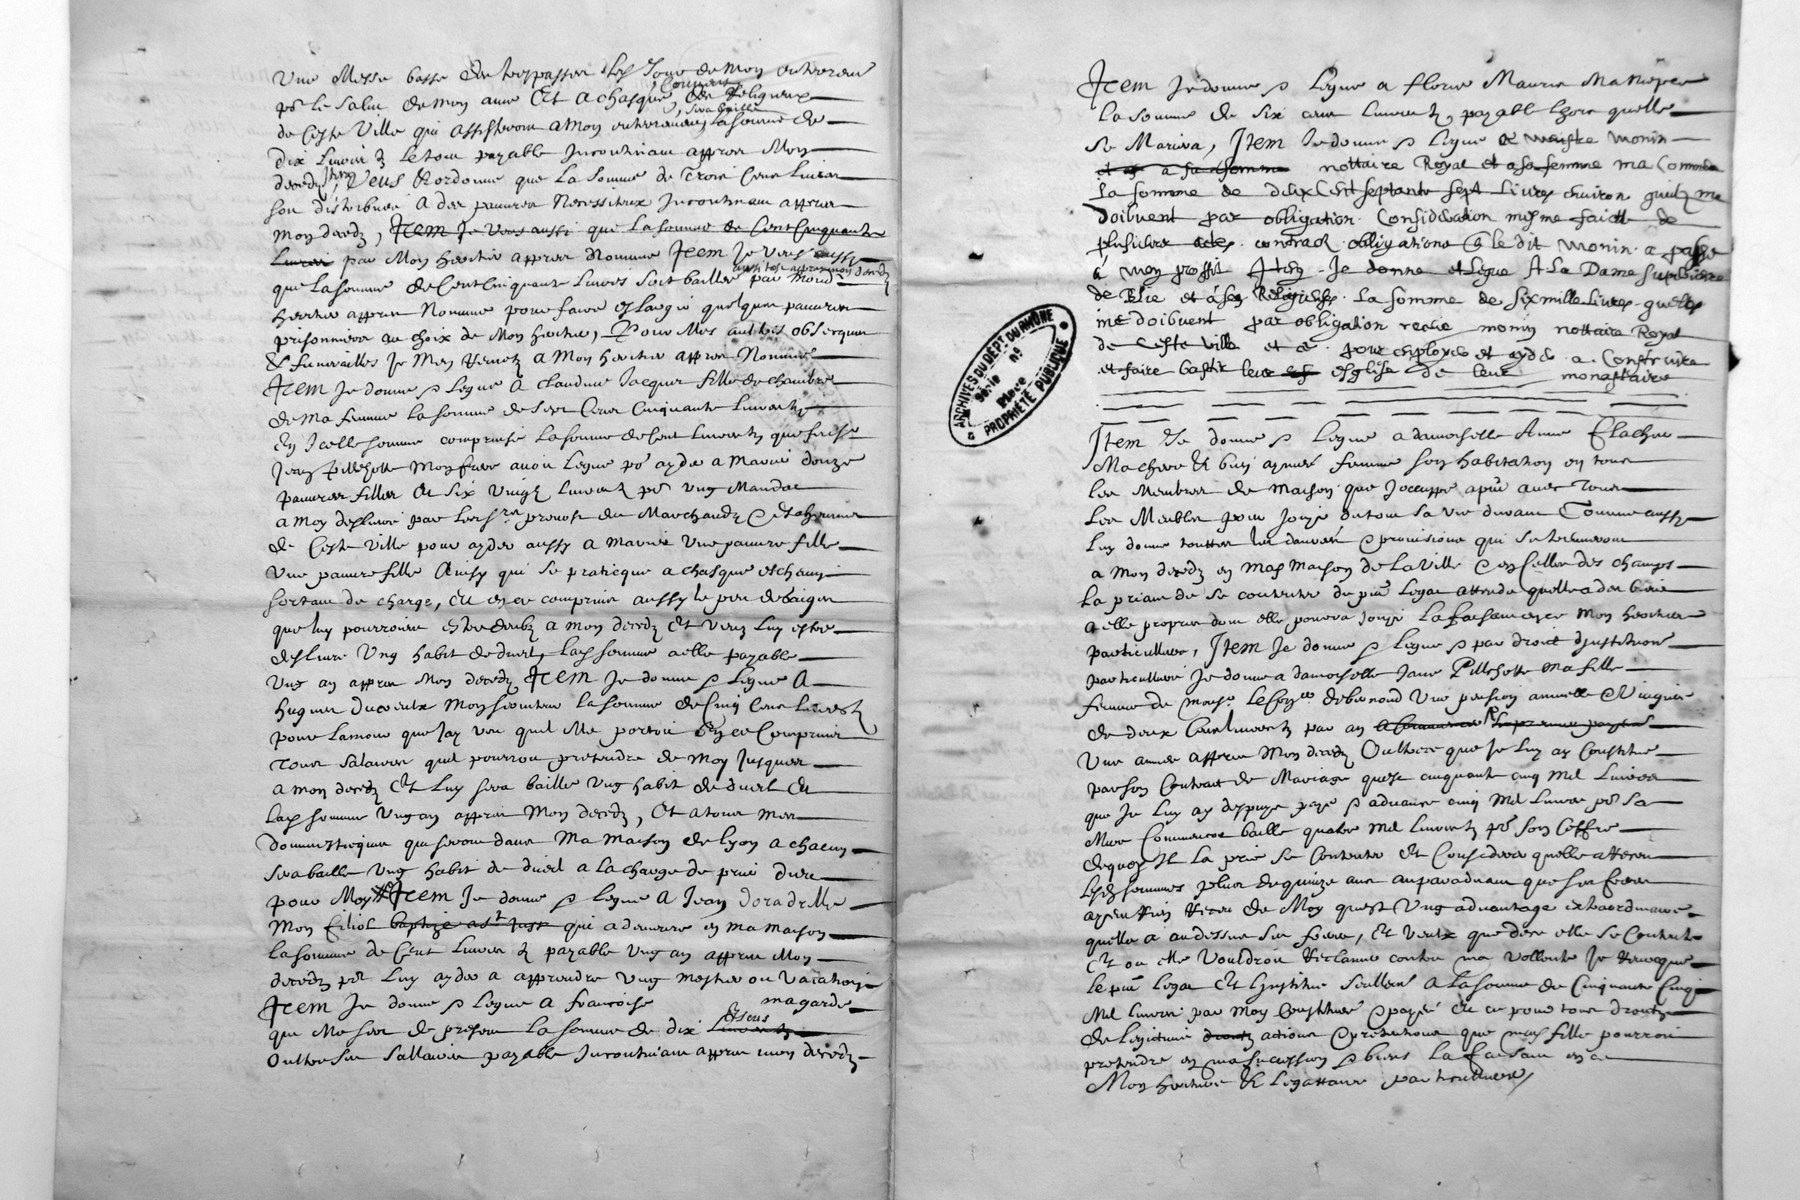 Une Messe basse de trespasses les Jour de Mon enterrem
po le salu de mon ame Et a chasque Couvent de Religieux
de Ceste Ville qui assisteron a Mon enterrement sera baille la somme de
dix Livres tz le tout payable Incontinan appres Mon
decedz, Item Veus & ordonne que la somme de Trois Cens Livres
soit distribuee a des pauvres Necessiteux Incontinan appres
mon decedz, Item Je Veus aussi que la somme de Cent Cinquante
Livres par Mon heritier appres Nomme Item Je Veus aussy
que la somme de Cent Cinquante Livres soit baillee par Mond
heritier appres Nomme pour faire eslargir quelques pauvres
prisonniers au choix de Mon heritier, Pour Mes aultres obseques
& funerailles Je Men Remetz a Mon heritier appres Nomme
Item Je donne & Legue a Claudine Jacquier fille de chambre
de Ma femme la somme de sept Cens Cinquante Livres tz
En Icelle somme comprinse la somme de Cent Livres tz que feu sr
Jean Pillehotte Mon frere avoit Legue po ayder a Marier douze
pauvres filles Et six Vingtz Livres tz po Ung Mandat
a Moy deslivre par les srs prevost des Marchandz & Eschevins
de Ceste Ville pour ayder aussy a Marier Une pauvre fille
Une pauvre fille Ainsy qui se praticque a chasque eschevin
sortant de charge, Et en ce comprins aussy le peu de gaiges
que luy pourroient estre deubz a mon decedz Et Veux luy estre
deslivre Ung habit de dueil, lad somme a elle payable
Ung an appres Mon decedz Item Je donne & Legue A
Hugues ducreulx Mon serviteur la somme de Cinq Cens Livres tz
pour Lamour que Jay veu quil Me portoit En ce Comprins
Tous salaires quil pourroit pretendre de Moy Jusques
a mon decedz Et Luy sera baille Ung habit de dueil Et
lad somme Ung an appres Mon decedz, Et a tous Mes
domestiques qui seront dans Ma Maison de Lyon a chacun
sera baille Ung habit de dueil a la charge de prier Dieu
pour Moy Item Je donne & Legue A Jean doradelle
Mon filiol baptize a St Just qui a demeure en ma maison
la somme de Cent Livres tz payable Ung an appres Mon
decedz po Luy ayder a apprendre Ung mestier ou Vacation
Item Je donne & Legue a francoise ma garde
que Me sert de present la somme de dix Escus Livres tz
Oultre ses sallaires payable Incontinan appres mon decedz
Item Je donne & Legue a florie Maurin Ma Niepce
la somme de six cens Livres tz payable lhors quelle
se Mariera, Item Je donne & Legue a maistre monin
et a sa femme nottaire Royal et a sa femme ma Commere
la somme de deux Cent septante sept Livres quilz me
doibvent par obligation Consideration mesme faicte de
plusieurs actes contractz obligations que le dit monin a passe
a mon proffit Item Je donne et Legue A La Dame Superieure
de et a ses Religieuses la somme de six mille Livres quelles
me doibvent par obligation receue monin nottaire Royal
de Ceste Ville et ce pour employer et ayder a Construire
et faire bastir leur esglise de leur monastaire
Item Je donne & Legue a damoiselle Anne Clachet
Ma chere & bien aymee femme son habitation en tous
les Membres de maison que Joccuppe a pnt avec Tous
les Meubles pour Jouyr du tout sa vie durant Comme aussy
Luy donne touttes les danrees & provisions qui se trouveront
a Mon decedz en Mes Maison de la Ville & en Celles des champs
la priant de se contenter du pnt Legat attendu quelle a des biens
a elle propres dont elle pourra Jouyr la faisant en ce Mon heritiere
particulliere, Item Je donne & Legue & par droict dInstitution
particulliere Je donne a damoiselle Jane Pillehotte ma fille
femme de Monsr Le Conser de bernoud Une pension annuelle & Viagere
de deux Cens Livres tz par an a Commencer la premiere payee
Une annee appres Mon decedz Oultre ce que Je Luy ay Constitue
par son Contract de Mariage quest cinquante cinq mil Livres
que Je Luy ay despuys paye & advance cinq Mil Livres po sa
Mere Commence baille quatre Mil Livres tz po son Coffre
de quoy Je la prie se Contenter Et Considerer quelle a Receu
lesd sommes plus de quinze ans auparadvant que ses freres
ayent Rien Receu de Moy quest Ung advantage extraordinaire
quelle a au dessus ses freres, Et Veulx que de ce elle se Contente
Et ou elle Vouldroit Reclamer contre ma Vollonte Je Revocque
le pnt Legat Et Linstitue seullem A la somme de Cinquante Cinq
Mil Livres par Moy Constituee & payee Et ce pour tous droictz
de Legitime droictz actions & pretentions que mad fille pourroit
pretendre en ma succession & biens la faisant en ce
Mon heritiere & Legattaire particulliere
ARCHIVES DU DEPT DU RHÔNE
Série No
Pièce
PROPRIÉTÉ PUBLIQUE